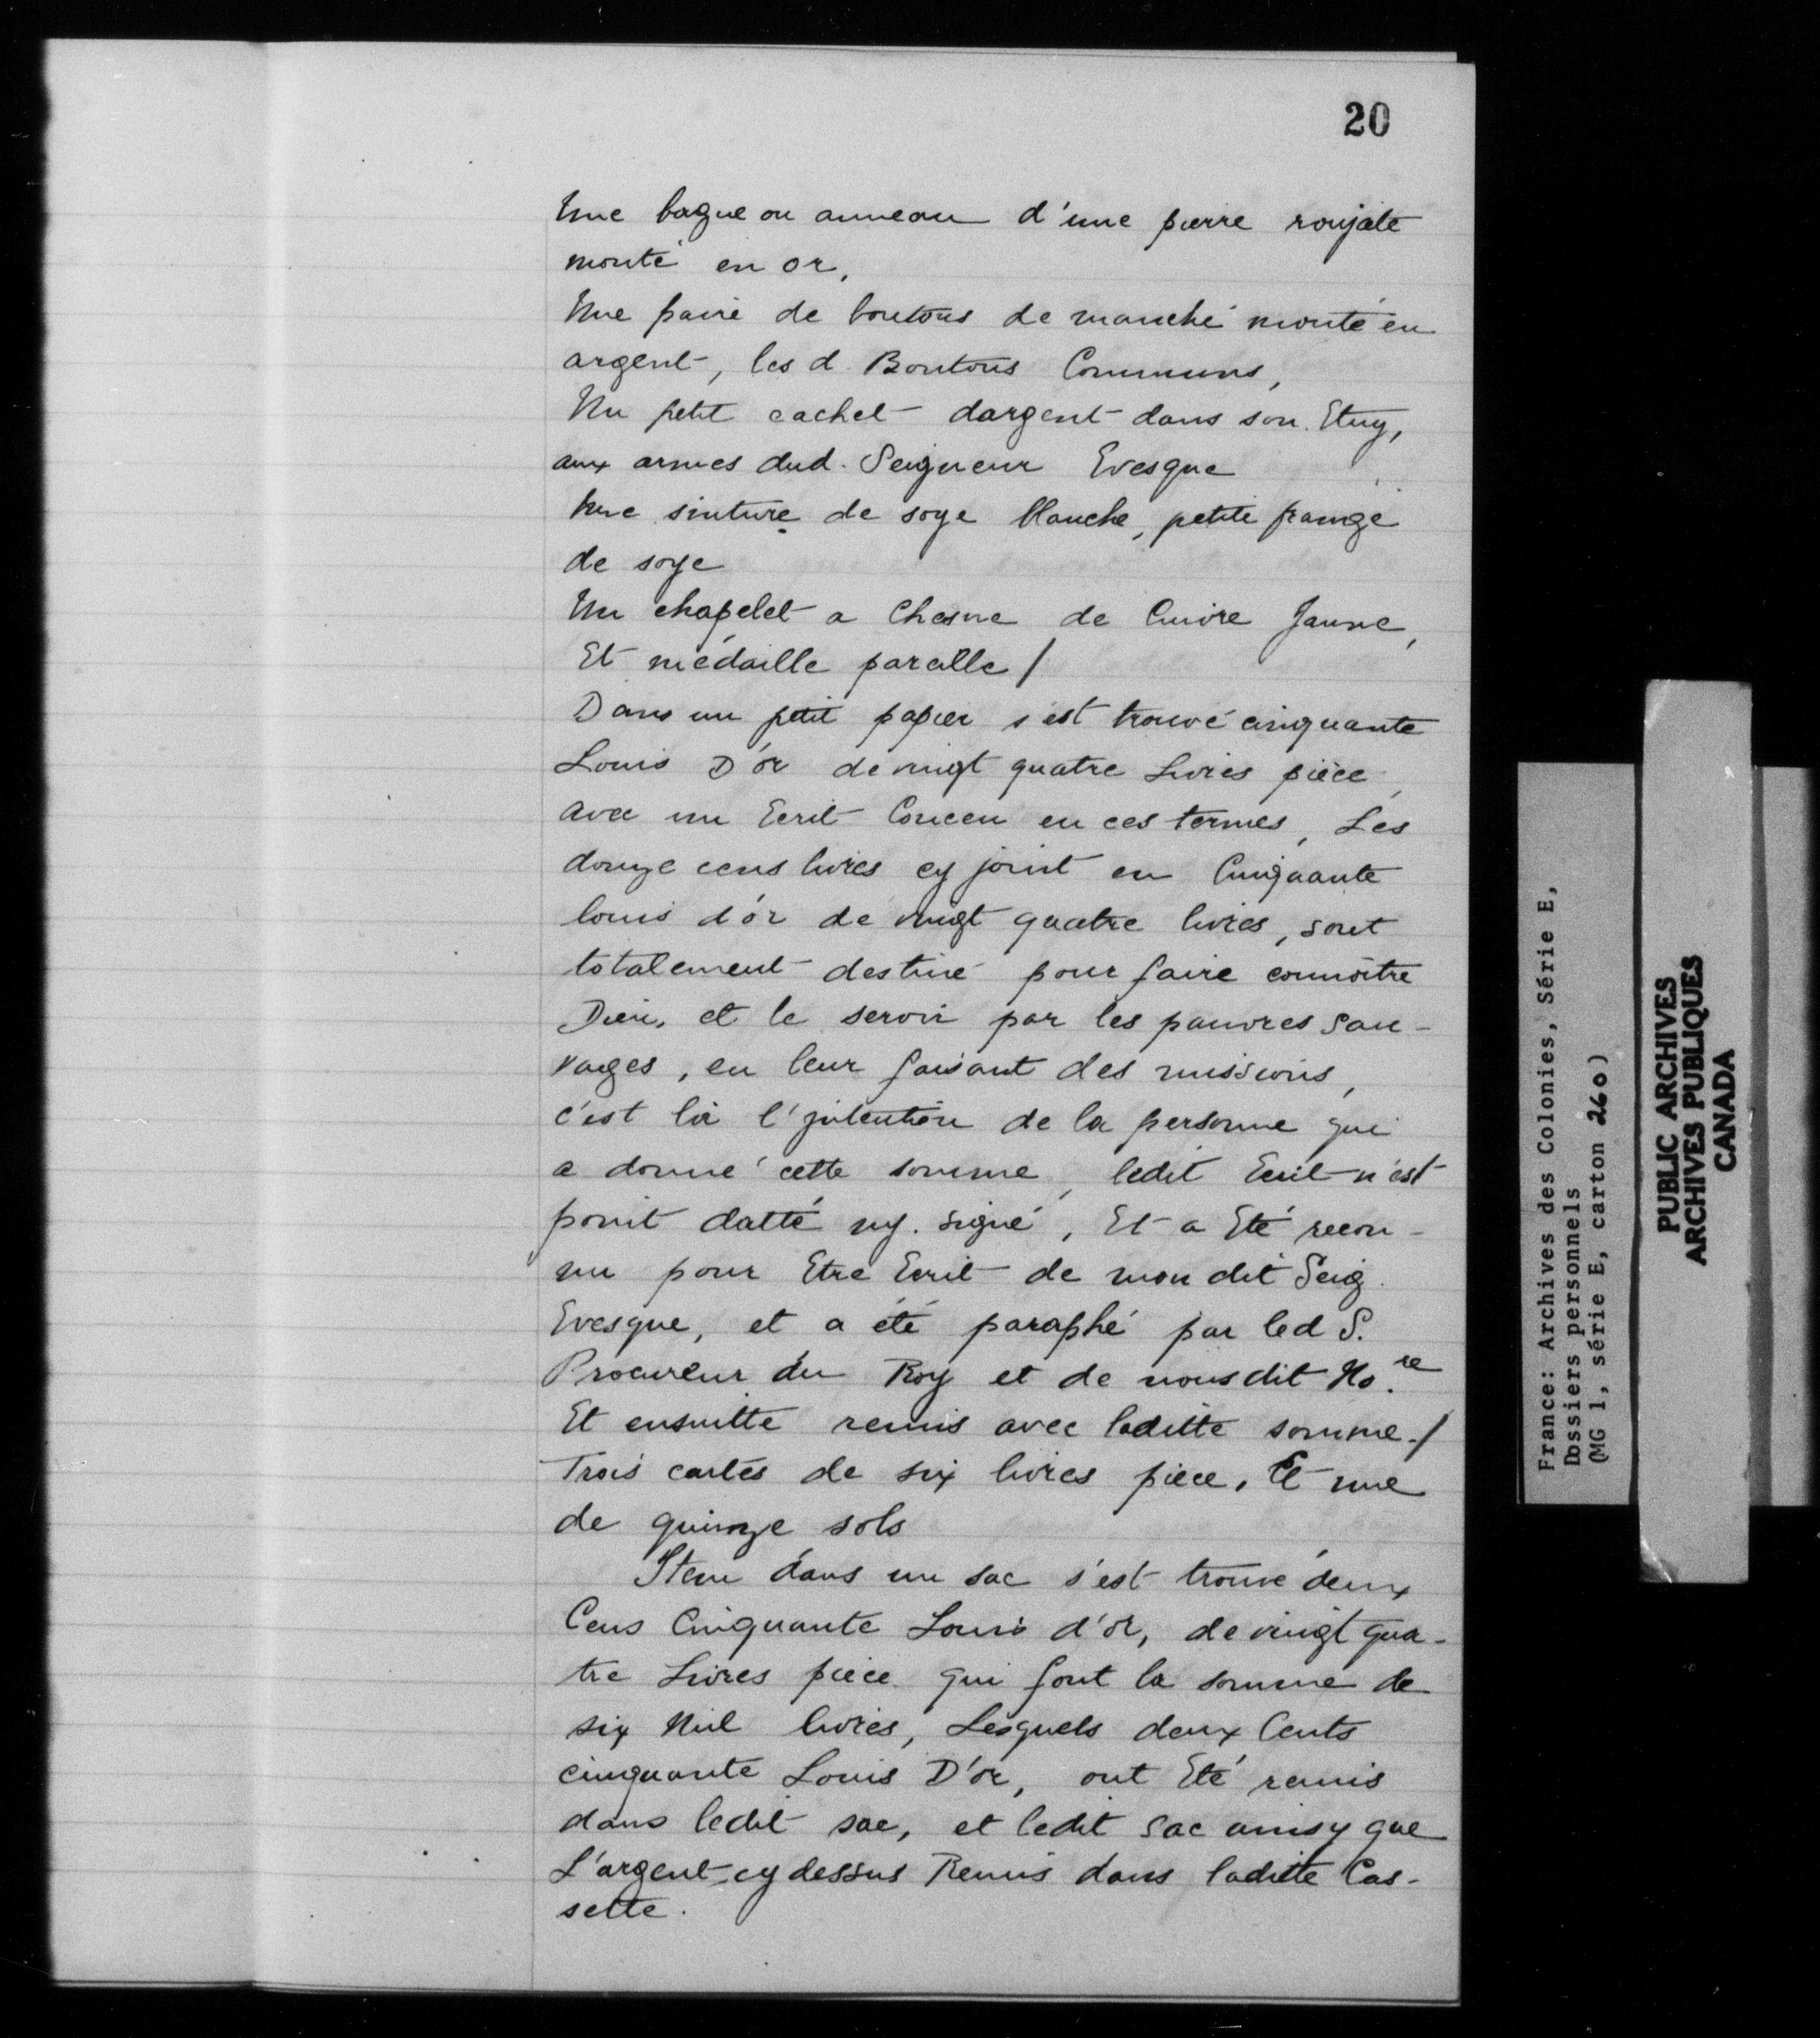 20
Une bague ou anneau d'une pierre roujate
monté en or,
Une paire de boutons de manche monté en
argent, les d. Boutons Communs,
Un petit cachet dargent dans son Etuy,
aux armes dud. Seigneur Evesque
Une sinture de soye blanche, petite frange
de soye
Un chapelet a Chesne de Cuivre Jaune,
Et médaille pareille /
Dans un petit papier s'est trouvé cinquante
Louis D'or de vingt quatre Livres pièce,
avec un Ecrit Conceu en ces termes, Les
douze cens livres cy joint en Cinquante
louis d'or de vingt quatre livres, sont
totalement destiné pour faire connoitre
Dieu, et le servir par les pauvres Sau-
vages, en leur faisant des missions,
c'est là l'jntention de la personne qui
a donné cette somme, ledit Ecrit n'est
point datté ny signé, Et a Eté recon-
nu pour Etre Ecrit de mon dit Seig.
Evesque, et a été paraphé par led S.
Procureur du Roy et de nousdit No.re
Et ensuitte remis avec laditte somme ./
Trois cartes de six livres pièce, Et une
de quinze sols
Item dans un sac s'est trouvé deux
Cens Cinquante Louis d'or, de vingt qua-
tre Livres pièce qui font la somme de
six Mil livres, Lesquels deux Cents
cinquante Louis D'or, ont Eté remis
dans ledit sac, et ledit Sac ainsy que
L'argent cy dessus Remis dans laditte Cas-
sette.
France: Archives des Colonies, Série E,
Dossiers personnels
(MG 1, série E, carton 260)
PUBLIC ARCHIVES
ARCHIVES PUBLIQUES
CANADA